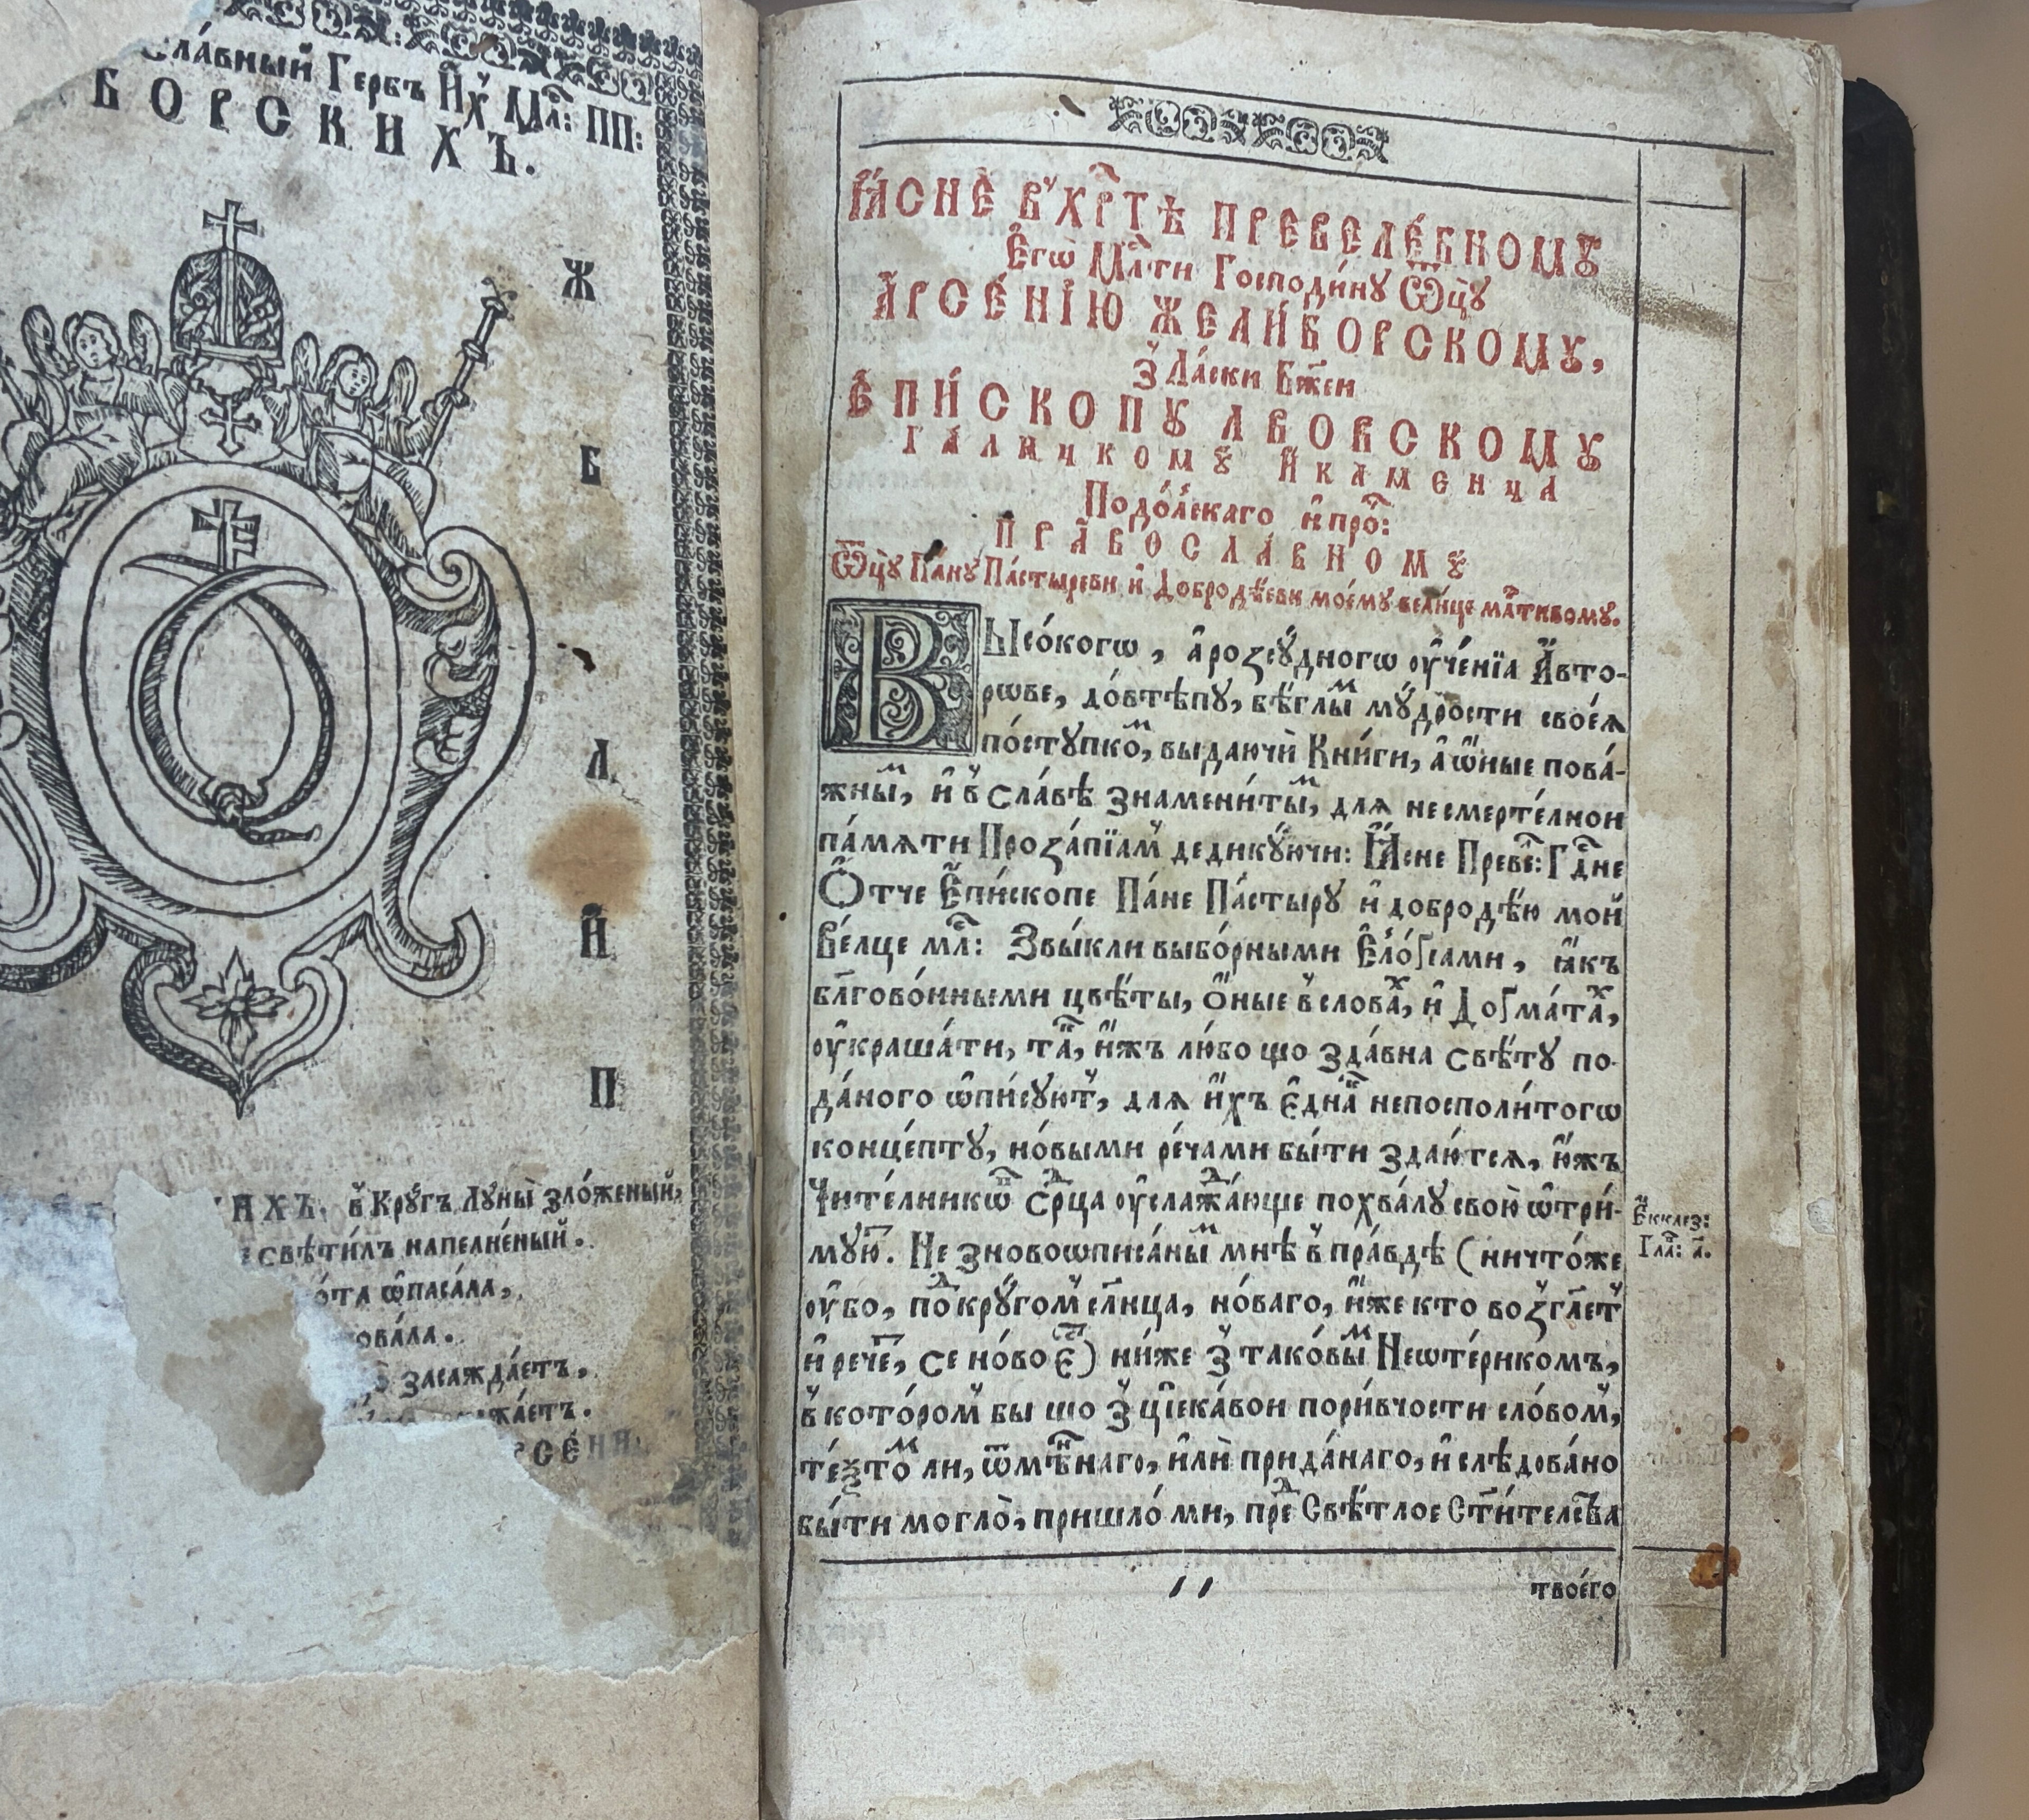 Сла́вный Гербъ И҆́хꙋ Мл҃: ПП:
БОРСКИХЪ.
Ж
Б
Л
И҆
П
ИХЪ. в̾ Крꙋ́гъ Лꙋны̀ зло́женый,
свѣти́лъ напелне́ный.
о́та ѡ҆паса́ла,
ова́ла.
засажда́етъ,
жа́етъ.
СЕ́НИ
ꙖСНЕ В̾ ХРⷭ҇ТѢ ПРЕВЕЛЕ́БНОМꙊ
Є҆гѡ̀ Млⷭ҇ти Господи́нꙋ Ѿцꙋ̀
А҆РСЕ́НІЮ ЖЕЛИ́БОРСКОМꙊ,
з̾ Ла́ски Бж҃ен
Е҆ПИ́СКОПꙊ ЛВОВСКОМꙊ
ГА́ЛИЧКОМꙊ И҆ КАМЕНЦА
Подо́лскаго и҆ про́ⷱ:
ПРАВОСЛА́ВНОМꙊ
Ѿцꙋ̀ Па́нꙋ Па́стыреви и҆ Добродѣ́еви мое́мꙋ вели́це млⷭ҇тивомꙋ.
Высо́когѡ, а҆ розсꙋ́дногѡ ᲂу҆че́нїа А҆́вто-
рѡве, до́втѣпꙋ, бѣ́глыⷨ мꙋ́дрости свое́ѧ
постꙋпкоⷨ, выдаючѝ Кни́ги, а҆ ѡ҆́ные пова́-
жныⷨ, и҆ в̾ сла́вѣ знамени́тыⷨ, для несмерте́лнои
па́мѧти Проза́пїам̾ дедикꙋ́ючи: Ꙗ҆́сне Превеⷧ: Гдⷭ҇не
О҆́тче Е҆пи́скопе Па́не Па́стырꙋ и҆ добродѣ́ю мой
Ве́лце млⷭ҇: Звы́кли выбо́рными Е҆ло́ґіами, ꙗ҆́къ
блгⷭ҇ово́нными цвѣ́ты, о҆́ные в̾ словаⷯ, и҆ Доґма́таⷯ,
ᲂу҆краша́ти, таⷦ, и҆́жъ лю́бо що зда́вна свѣ́тꙋ по-
да́ного ѡ҆пи́сꙋют̾, для и҆́хъ є҆днаⷦ непосполи́тогѡ
конце́птꙋ, но́выми ре́чами бы́ти здаю́тсѧ, и҆́жъ
Чите́лникѡⷡ Срⷣца ᲂу҆слаⷤда́юще похва́лꙋ свою̀ ѡ҆три́-
мꙋюⷮ. Не зновоѡписа́ныⷨ мнѣ в̾ пра́вдѣ (ничто́же
ᲂу҆́бо, поⷣ крꙋ́гом̾ слн҃ца, но́ваго, и҆́же кто возгл҃ет̾
и҆ рече́ⷮ, се но́во єⷭ҇) ни́же з̾ тако́выⷨ Неѡте́рикомъ,
в̾ кото́ром̾ бы що з̾ цїека́вои пори́вчости сло́вом̾,
те́ѯтоⷨ ли, ѿмѣ́ⷩнаго, и҆лѝ прида́наго, и҆ слѣдова́но
бы́ти могло̀, пришло́ ми, преⷣ Свѣ́тлое Ст҃и́телства
Е҆кклез:
Глаⷡ: а҃.
твоего